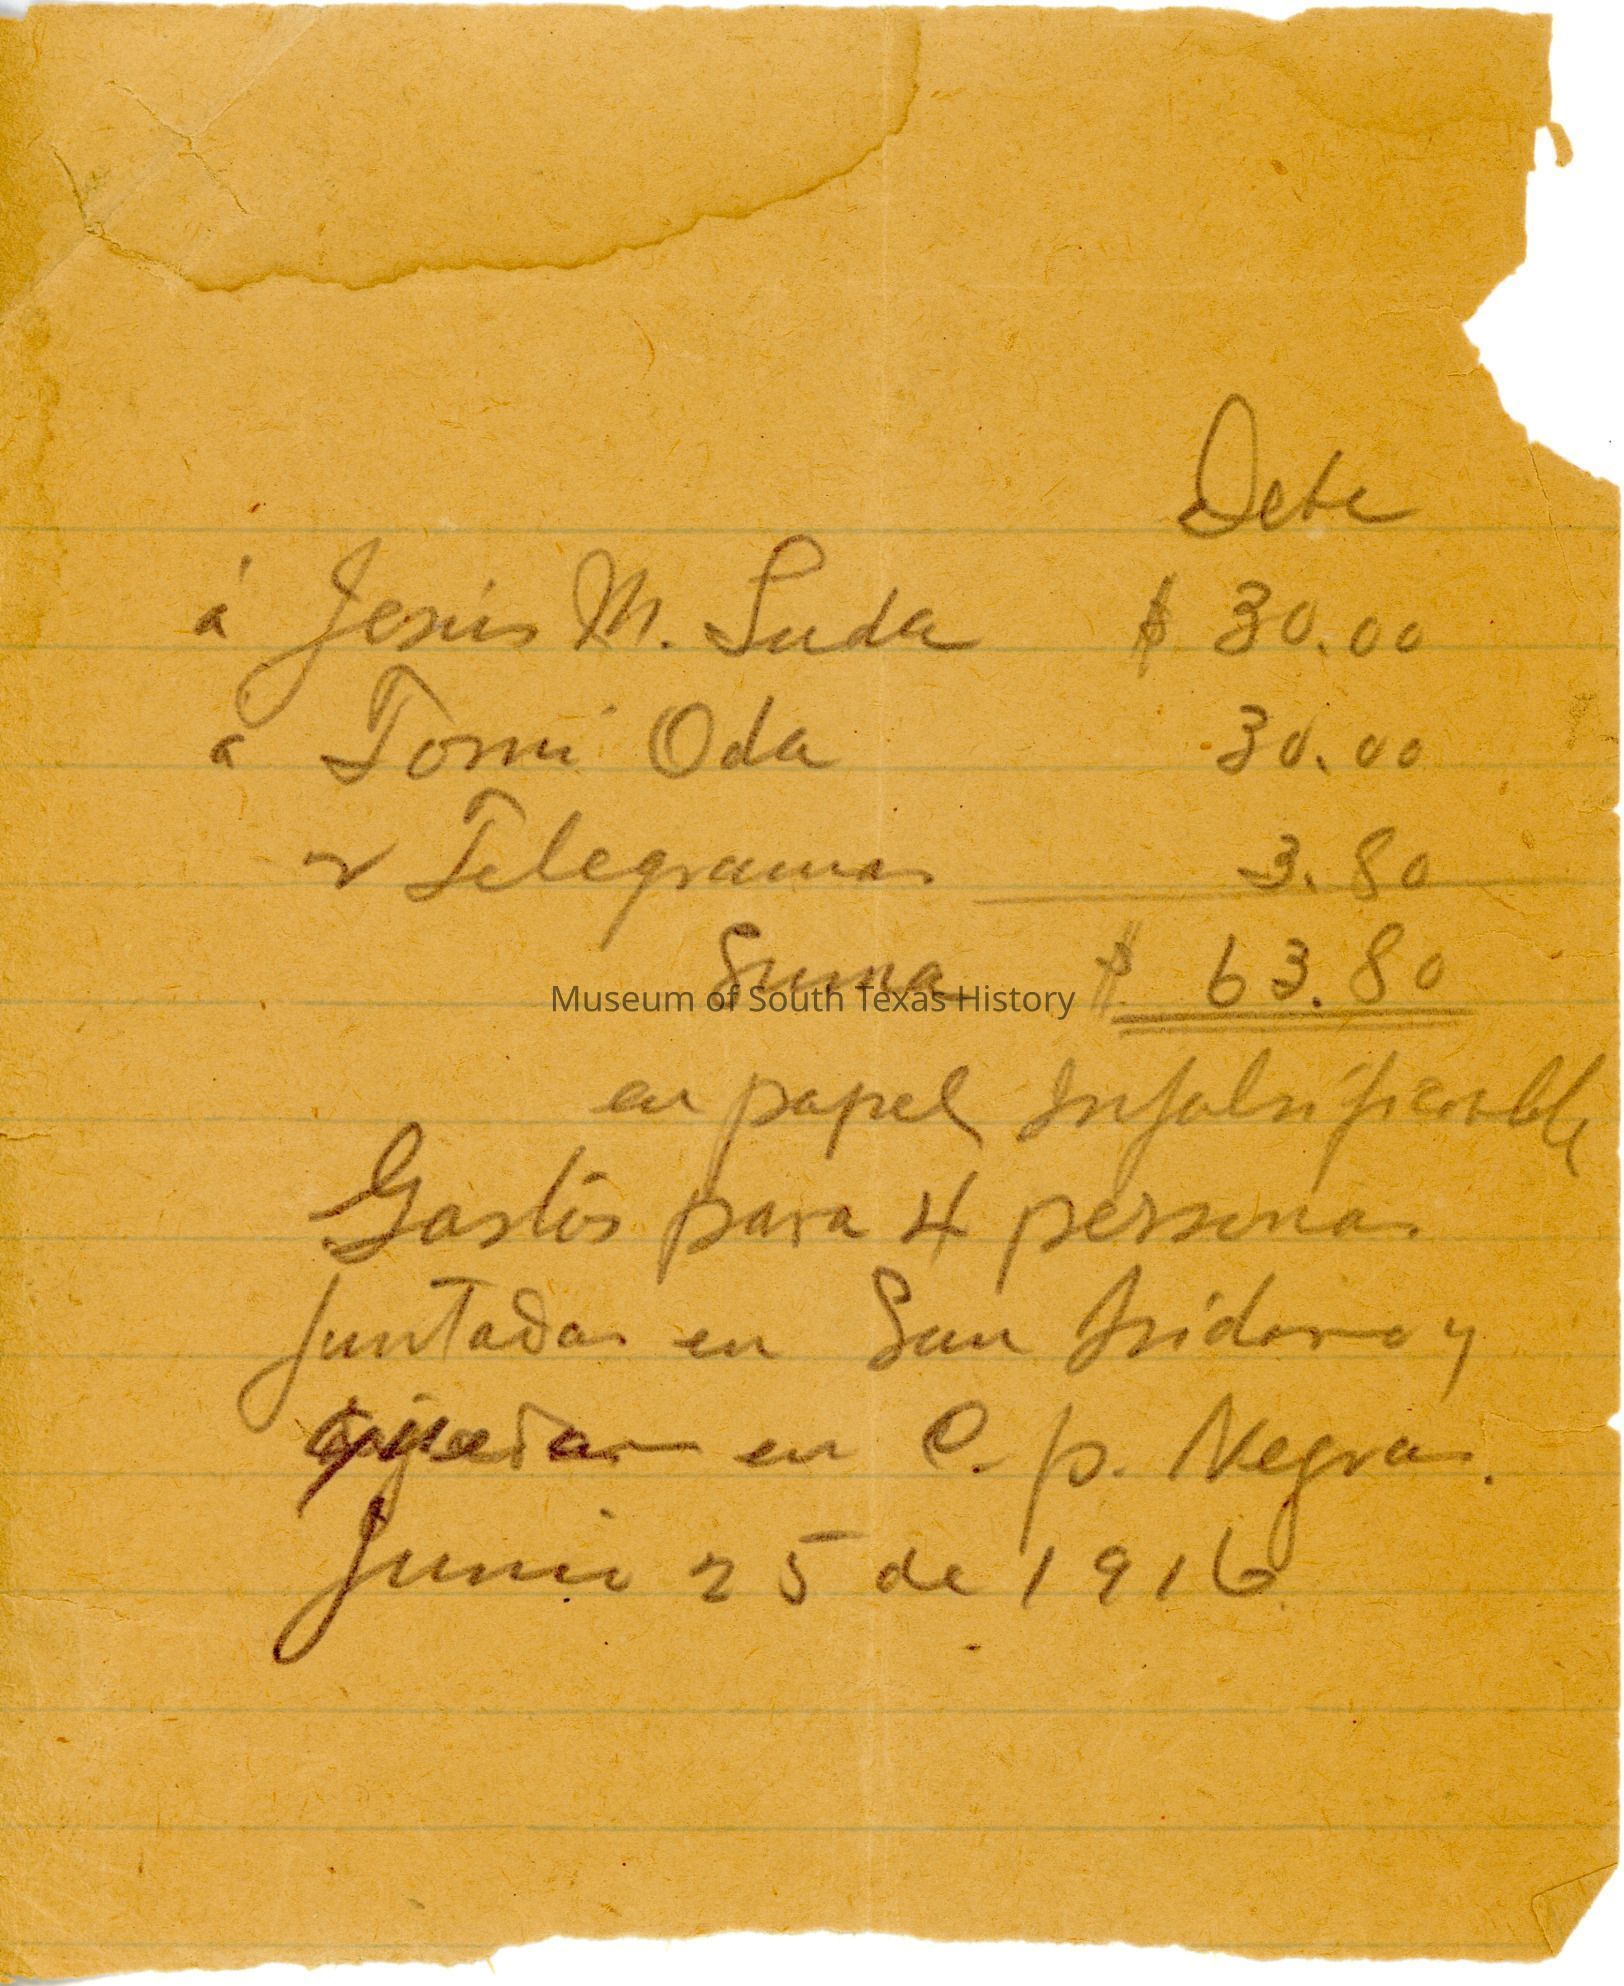 Debe
á Jesús M. Suda $ 30.00
á Tomi Oda 30.00
2 Telegramas 3.80
Suma $ 63.80
Museum of South Texas History
en papel Infalsificable
Gastos para 4 personas
juntadas en San Isidoro y
quedar en C. p. Negras.
Junio 25 de 1916.